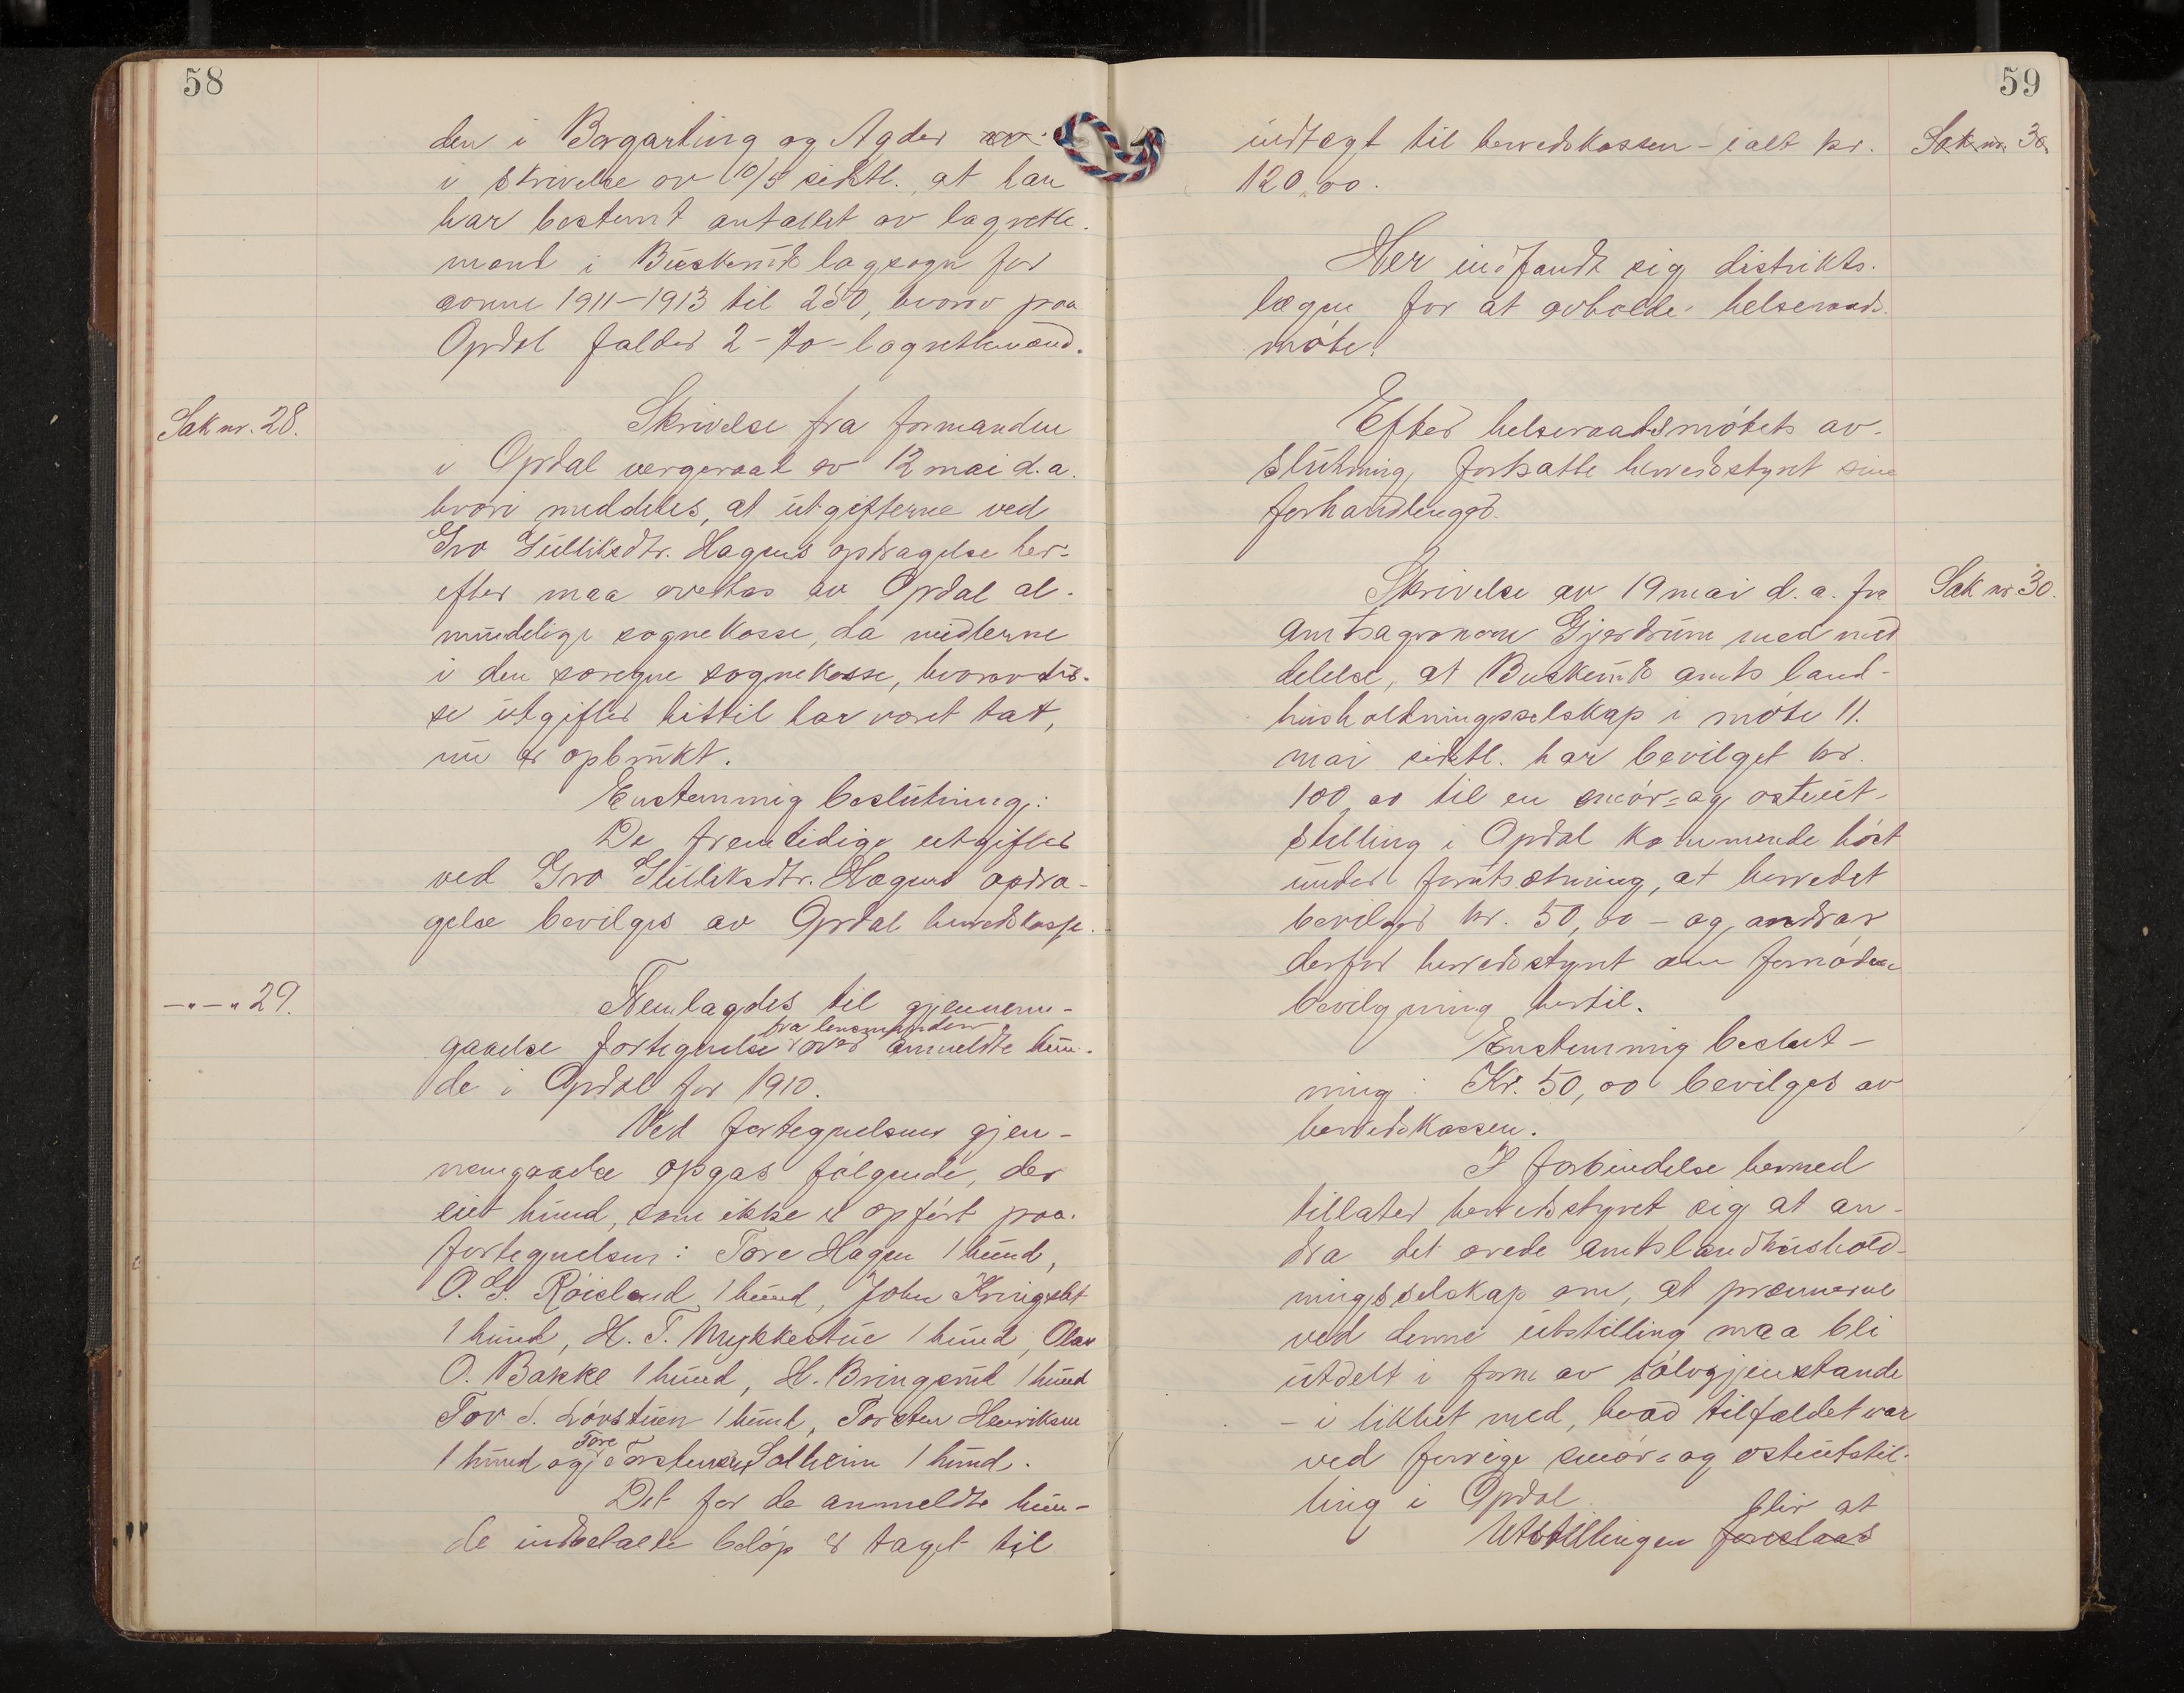 58
den i Borgarting og Agder
i skrivelse av 10/5 sidstl. at han
har bestemt antallet av lagrette-
mænd i Buskeruds lagsogn for
aarene 1911-1913 til 250, hvorav paa
Opdal falder 2 - to - lagrettemænd.
Sak nr. 28.
Skrivelse fra formanden
i Opdal vergeraad av 12 mai d.a.
hvori meddeles, at utgifterne ved
Gro Gulliksdtr. Hagens opdragelse her-
efter maa overtas av Opdal al-
mindelige sognekasse, da midlerne
i den særegne sognekasse, hvorav dis-
se utgifter hittil har været tat,
nu er opbrukt.
Enstemmig beslutning:
De fremtidige utgifter
ved Gro Gulliksdtr. Hagens opdra-
gelse bevilges av Opdal herredskasse.
-"-" 29.
Fremlagdes til gjennem-
fra lensmanden
gaaelse fortegnelse over anmeldte hun-
de i Opdal for 1910.
Ved fortegnelsens gjen-
nemgaaelse opgas følgende, der
eiet hund, som ikke er opført paa
fortegnelsen: Tore Hagen 1 hund,
O. G. Røisland 1 hund, John Kringset
1 hund, H. T. Mykkestue 1 hund, Olav
O. Bakke 1 hund, H. Bringsrud 1 hund
Tor S. Løvstuen 1 hund, Torsten Henriksen
Tore
1 hund og Torstensen Solheim 1 hund.
Det for de anmeldte hun-
de indbetalte beløp er taget til
59
indtægt til herredskassen - ialt kr.
Sak nr. 30.
120,00.
Her indfandt sig distrikts-
læge for at avholde helseraads-
møte.
Efter helseraadsmøtets av-
slutning fortsatte herredsstyret sine
forhandlinger.
Sak nr 30.
Skrivelse av 19 mai d.a. fra
amtsagronom Gjerdrum med med
delelse, at Buskeruds amts land-
husholdningsselskap i møte 11.
mai sidstl. har bevilget kr.
100,00 til en smør- og osteut-
stilling i Opdal kommende høst
under forutsætning, at herredet
bevilger kr. 50,00 - og andrar
derfor herredsstyret om fornøden
bevilgning hertil.
Enstemmig beslut-
ning: Kr. 50,00 bevilges av
herredskassen.
I forbindelse hermed
tillater herredsstyret sig at an-
dra det ærede amtslandhushold-
ningsselskap om, at præmierne
ved denne utstilling maa bli
utdelt i form av sølvgjenstande
- i likhet med, hvad tilfældet var
ved forrige smør- og osteutstil-
ling i Opdal.
blir at
Utstillingen foreslaaes